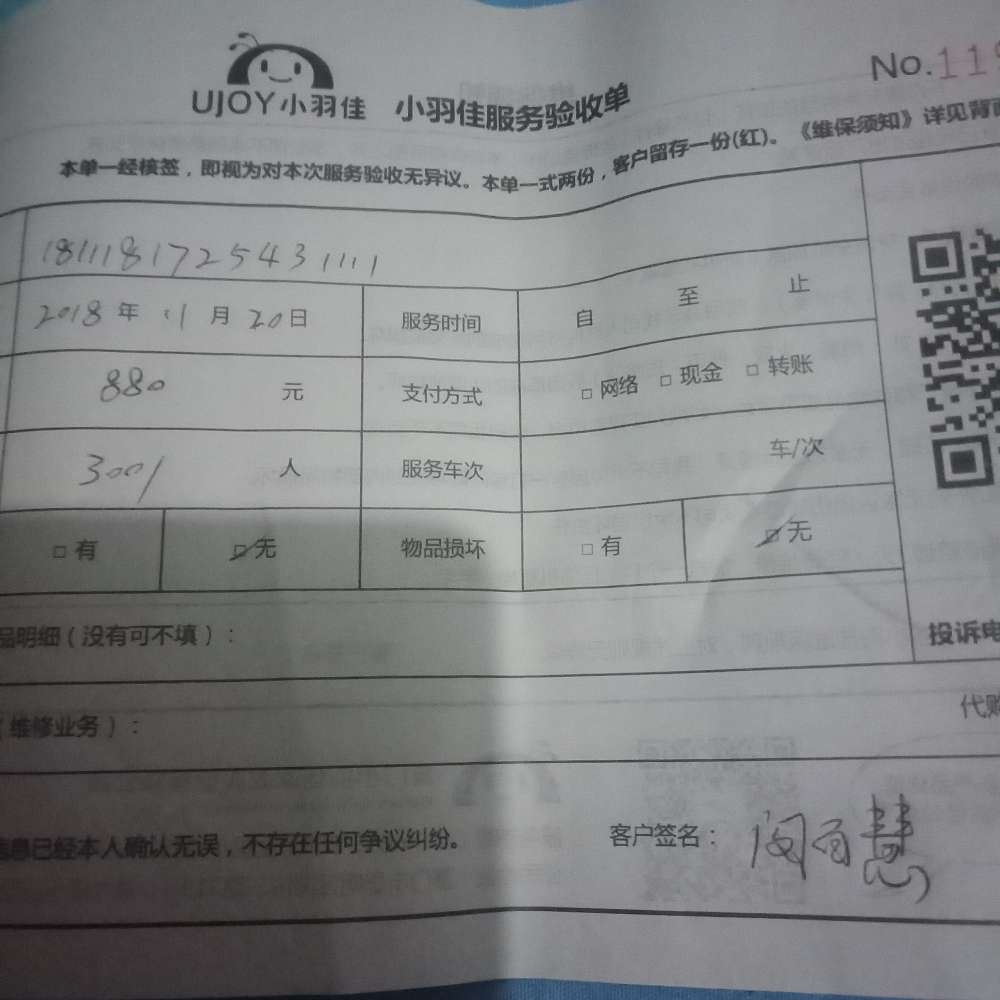 UJOY小羽佳 小羽佳服务验收单 No.119
本单一经核签，即视为对本次服务验收无异议。本单一式两份，客户留存一份(红)。《维保须知》详见背面
1811181725431111
2018年11月20日 服务时间 自 至 止
880 元 支付方式 □网络 □现金 □转账
3001 人 服务车次 车/次
□有 ☑无 物品损坏 □有 ☑无
品明细（没有可不填）： 投诉电
（维修业务）： 代购
信息已经本人确认无误，不存在任何争议纠纷。 客户签名：